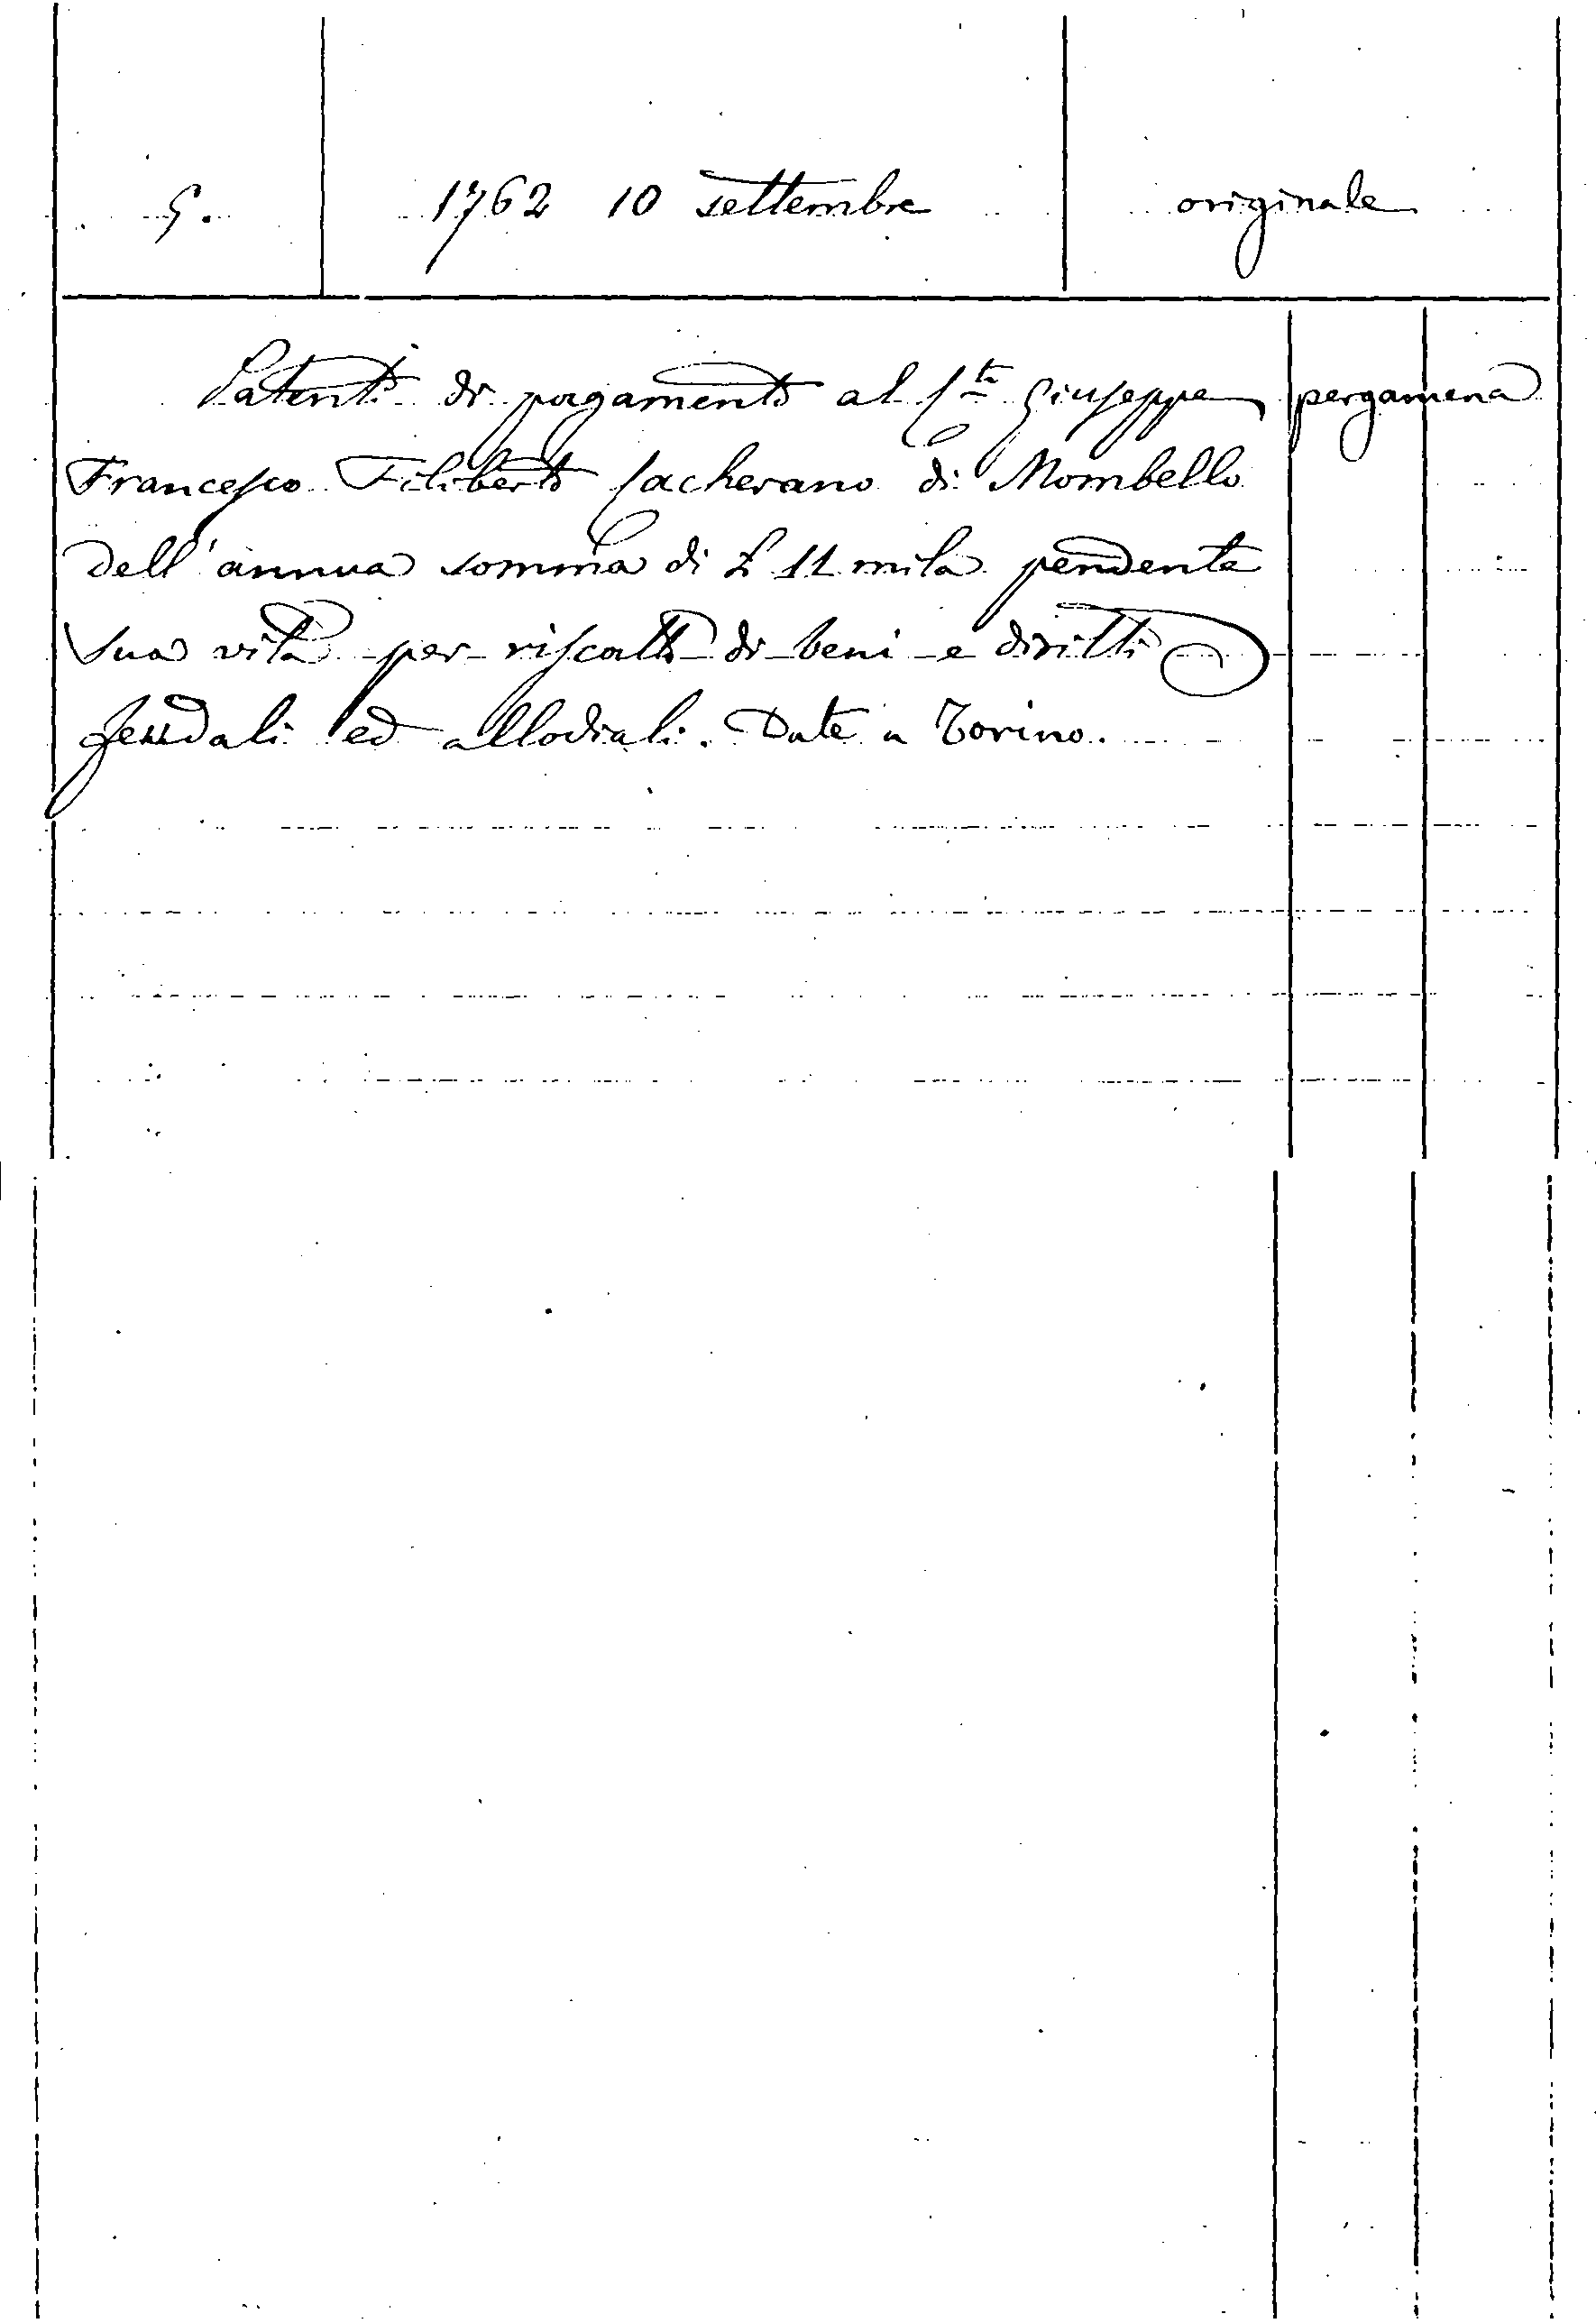 5. 1762 10 settembre originale
Patenti di pagamento al Cte Giuseppe pergamena
Francesco Filiberto Cacherano di Mombello
dell'annua somma di £ 11 mila pendente
sua vita per riscatto di beni e diritti
feudali ed allodiali. Date a Torino.